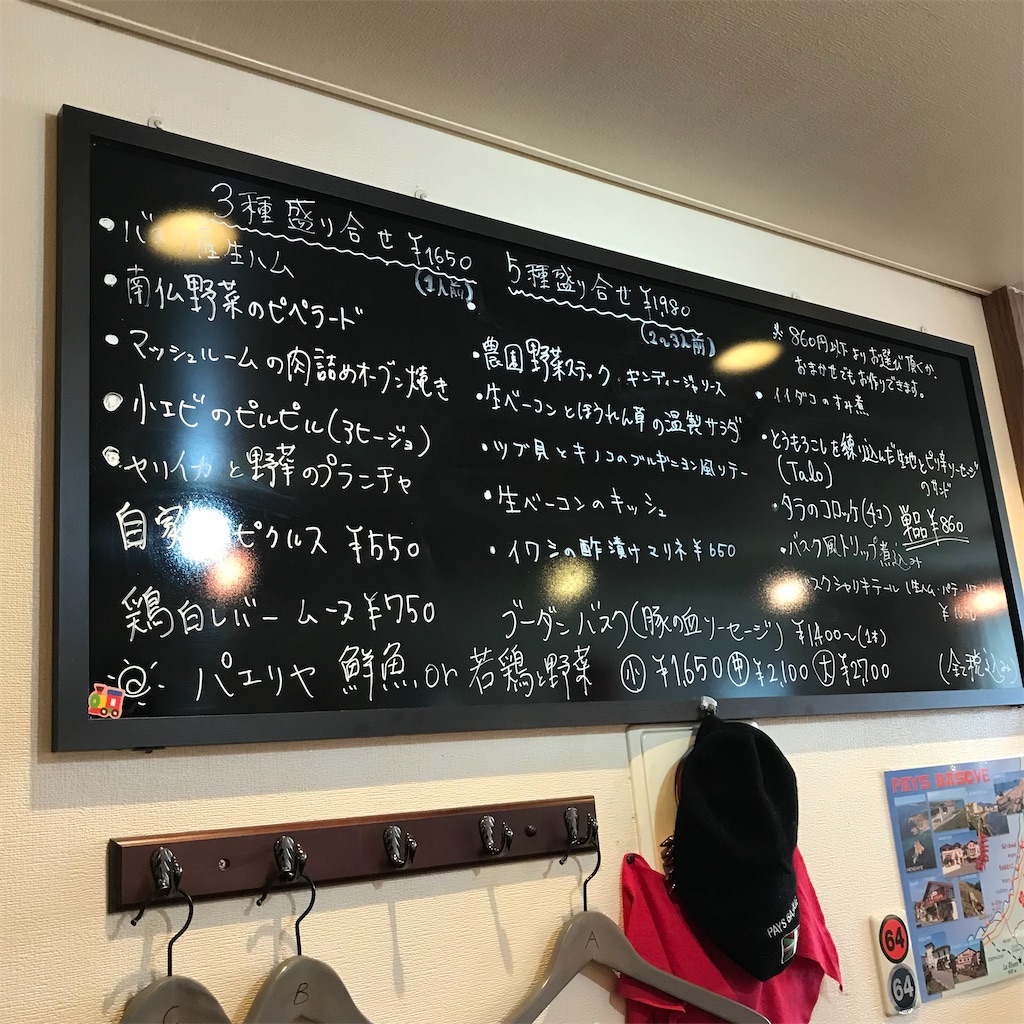 3種盛り合せ ¥1650
(1人前)
生ハム
・南仏野菜のピペラード
・マッシュルームの肉詰めオーブン焼き
・小エビのピルピル(アヒージョ)
・ヤリイカと野菜のプランチャ
自家 ピクルス ¥550
鶏白レバームース ¥750
5種盛り合せ ¥1,980
(2~3人前)
・農園野菜スティック
・生ベーコンとほうれん草の温製サラダ
・ツブ貝とキノコのブルギニヨン風ソテー
・生ベーコンのキッシュ
・イワシの酢漬けマリネ ¥650
860円以下よりお選び頂くか、
おまかせでもお作りできます。
・イイダコのすみ煮
・とうもろこしを練り込んだ生地とピリ辛ソーセージ
(Talo) のサンド
・タラのコロッケ(4コ) 単品¥860
・バスク風トリップ煮込み
バスクシャリキテール (生ハム・パテ
ブーダンバスク(豚の血ソーセージ) ¥1400~(1本)
パエリヤ 鮮魚 or 若鶏と野菜 小 ¥1,650 中 ¥2,100 大 ¥2,700 (全て税込み)
PAYS BASQUE
PAYS BASQUE
64
64
A
B
C